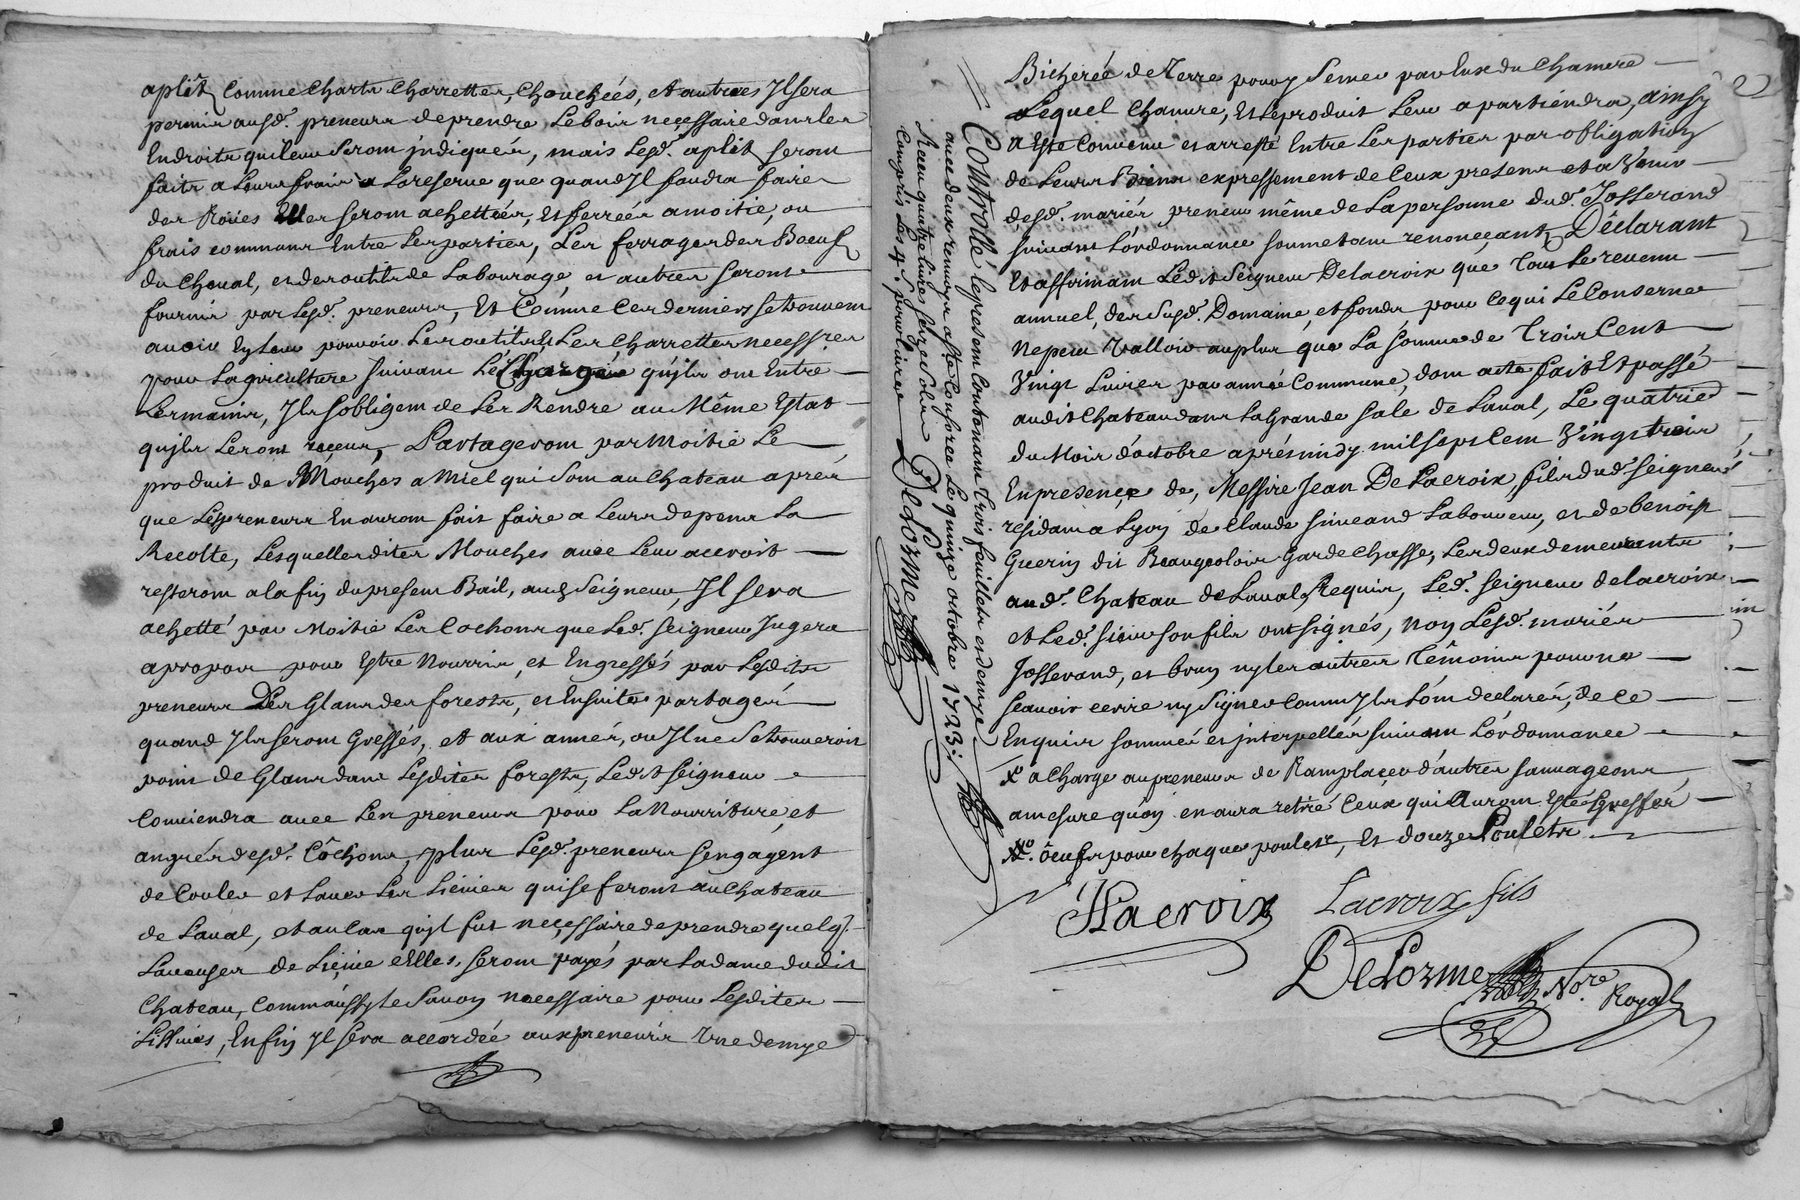 aplêt Comme Charts Charrettes, Chouchées, et autres Il sera
permis ausd. preneurs de prendre Le bois necessaire dans les
Endroits qui leur Seront jndiquées, mais Lesd. aplêt seront
faits a Leurs frais a La reserve que quand Il faudra faire
des Roües Elles seront achettées, Et ferrées a moitié, ou
frais communs Entre Les parties, Les forrages des Boeufs
du Cheval, et des outils de Labourage, et autres seront
fournis par Lesd. preneurs, Et Comme Ces derniers se trouvent
avoir En Leur pouvoir Les outils & Les Charrettes necessres
pour Lagriculture suivant Le Chargé qu'jls ont Entre
Les mains, Jls s'obligent de Les Rendre au Même Estat
qu'jls Les ont reçeus, Partageront par Moitié Le
produit de Mouches a Miel qui sont au Chateau après
que Les preneurs En auront fait faire a Leurs depens La
Recolte, Lesquelles dites Mouches avec Leur accroit
resteront a la fin du present Bail, aud Seigneur, Il sera
achetté par Moitié Les Cochons que Led. Seigneur Jugera
a propos pour Estre Nourris, et Engressés par Lesdits
preneurs Des Glans des forests, et Ensuite partagés
quand Jls seront Gressés, et aux années, ou Il ne se trouveroit
point de Glans dans Lesdites forests, Ledit Seigneur
Conviendra avec Les preneurs pour La Nourriture, et
angrés desd. Côchons, plus Lesd. preneurs sengagent
de Couler et Laver Les Lissives qui se feront au Chateau
de Laval, et au Cas qu'jl fut necessaire de prendre quelq.
Laveuses de Lissive Elles seront payés par La dame dudit
Chateau, Comm'aussy le Savon necessaire pour Lesdites
Lissives, Enfin Jl sera accordée aux preneurs Une demye
Bicherée de Terre pour y semer par Eux du Chamvre
Lequel Chanvre, Et Le produit Leur apartiendra, ainsy
a Esté Convenu et arresté Entre Les parties par obligation
de Leurs Biens expressement de Ceux presens et a Venir
desd. mariés preneurs même de La personne dud. Josserand
suivant L'ordonnance soumetant renonçeant, Déclarant
Et affirmant Ledit Seigneur Delacroix que Tous Le revenu
annuel, des susd. Domaine, et fonds pour Ce qui Le Conserne
ne peut Valloir au plus que La somme de Trois Cent
Vingt Livres par année Commune, dont acte fait Et passé
audit Chateau dans La Grande sale de Laval, Le quatrie
du Mois d'octobre après midy mil sept Cent Vingt trois
En presençe de, Messire Jean De Lacroix, fils dud. Seigneur
residant a Lyon de Claude simeand Laboureur, et de benoist
Guerin dit Beaugeolois Garde Chasse, Les deux demeurants
aud. Chateau de Laval Requis, Led. Seigneur delacroix
et Led. sieur son fils ont signés, non Lesd. mariés
Josserand, et brun ny les autres Têmoins pour ne
sçavoir ecrire ny Signer Comm' Jls L'ont declarés, de Ce
Enquis sommés et jnterpellés suivant L'ordonnance
Xo a Charge au preneurs de Ramplaçer d'autres sauvageons
a mesure qu'on en aura retiré Ceux qui Auront Esté Greffés
XXo. oeufs pour chaque poulete, Et douze Poulets
JLacroix Lacroix fils
DeLorme Nore Royal
Controllé le present Contenant trois feuillets et demye
avec deux renvoys a Ste Conforce Le quinze octobre 1723:
Reçu quatre Livres seize sols DeLorme
Compris Les 4.s. pour Livre